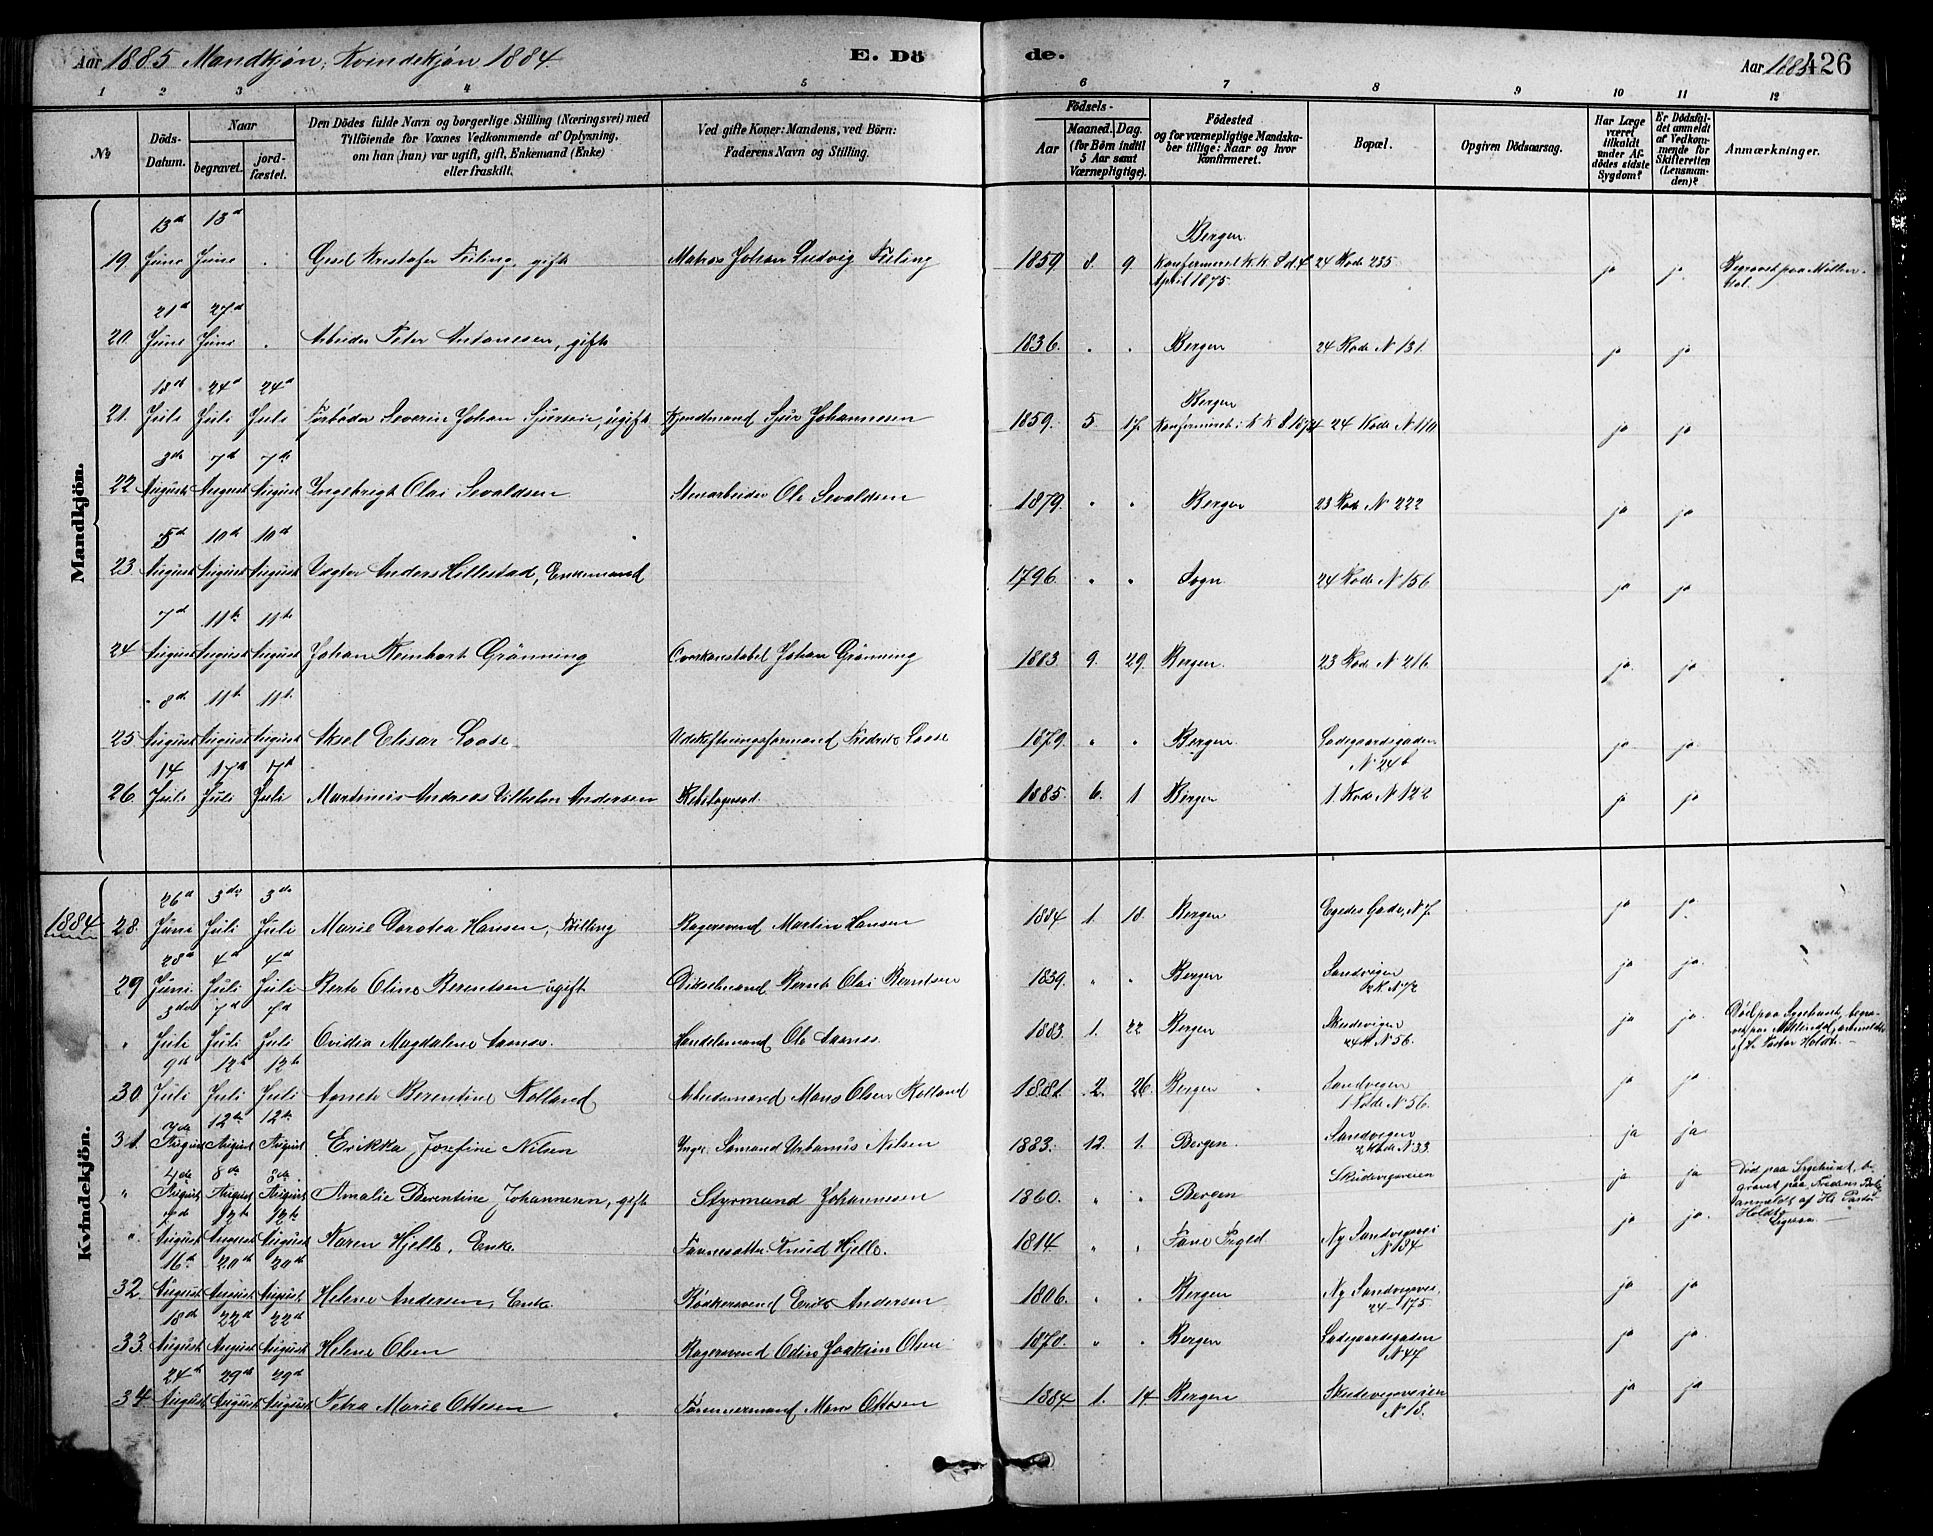 Aar 1885 Mandkjøn, Kvindekjøn 1884. E. Dö de. Aar 1885 426
1 2 3 4 5 6 7 8 9 10 11 12
№
Döds-Datum.
Naar
begravet.
jordfæstet.
Den Dödes fulde Navn og borgerlige Stilling (Næringsvei) med
Tilföiende for Voxnes Vedkommende af Oplysning,
om han (hun) var ugift, gift, Enkemand (Enke)
eller fraskilt.
Ved gifte Koner: Mandens, ved Börn:
Faderens Navn og Stilling.
Födsels-
Aar
Maaned. Dag.
(for Börn indtil
5 Aar samt
Værnepligtige).
Födested
og for værnepligtige Mandskaber tillige: Naar og hvor
konfirmeret.
Bopæl.
Opgiven Dödsaarsag.
Har Læge været tilkaldt under Afdödes sidste Sygdom?
Er Dödsfaldet anmeldt af Vedkommende for Skifteretten (Lensmanden)?
Anmærkninger.
Mandkjön.
19 13de Juni 13de Juni . Kristofer Fieling, gift Matros Johan Ludvig Fieling 1859 8. 9 Bergen Konfirmeret K. K. April 1875. 24 Rode 235 ja ja. Begravet paa Møllendal.
20 21de Juni 27de Juni . Arbeider Peter Antonesen, gift 1836. . . Bergen 24 Rode N 131. ja ja
21. 18de Juli 24de Juli 24de Juli Severin Johan Sjursen, ugift Sjur Johannesen 1859. 5 17. Bergen Konfirmeret i K K 24 Rode N ja ja
22 3de August 7de August 7de August Ingebrigt Olai Sevaldsen Stenarbeider Ole Sevaldsen 1879. " " Bergen 23 Rode N 222 ja ja
23. 5de August 10de August 10de August Vægter Anders Hillestad, Enkemand 1796. " " Sogn 24 Rode N 156 ja ja
24 7de August 11te August 11te August Johan Reinhart Grönning Overkonstabel Johan Grönning 1883 9. 29. Bergen. 23 Rode N 216 ja. ja.
25 8de August 11te August 11te August Aksel Elisar Loose. Fredrik Loose 1879. " " Bergen. Ladegaardsgaden N 24b ja ja
26. 14 Juli 17de Juli 17de Juli Martinus Andreas Vilhelm Andersen 1885. 6. 1 Bergen 1. Rode N 122 ja ja
Kvindekjön.
1884 28. 26de Juni 3de Juli 3de Juli Marie Dorotea Hansen, Tvilling Bagersvend Martin Hansen 1884 1. 18. Bergen Egedes Gade, N 7. ja ja.
29 28de Juni 4de Juli 4de Juli Berte Oline Berentsen ugift Bernt Olai Berntsen 1839. " . Bergen Sandvigen 2 R. N 72 ja ja.
" 3de Juli 7de Juli 7de Juli Ovidia Magdalene Aanes. Handelsmand Ole Aanes. 1883. 1. 22 Bergen Skudevigen 24 R N 56. ja ja. Död paa Sygehuset, begravet paa Möllendal, anmeldt af Hr. Pastor Holdt. —
30. 9de Juli 12te Juli 12te Juli Agnete Berentine Kolland Arbeidsmand Mons Olsen Kolland 1881. 2. 26. Bergen Sandvigen 1 Rode N 56. ja ja
31. 7de August 12te August 12te August Erikka Josefine Nilsen Sømand Urbanus Nilsen 1883. 12. 1. Bergen. Sandvigen 2 Rode N 33. ja ja
" 4de August 8de August 8de August Amalie Berentine Johannesen, gift Styrmand Johannesen 1860. " " Bergen Skudevigsveien ja ja Död paa Sygehuset, begravet paa anmeldt af Hr. Pastor Holdt.
" 7de August 12te August 12te August Karen Hjelle, Enke. Knud Hjelle. 1814 " " Fane Prgld Ny Sandvigsvei N 134 ja ja.
32. 16de August 20de August 20de August Helene Andersen, Enke. Bödkersvend Erik Andersen 1806. " . Bergen Ny Sandvigsvei, 24 — 175. ja ja
33. 18de August 22de August 22de August Helene Olsen Bagersvend Odin Joakim Olsen 1878. " " Bergen Ladegaardsgaden N 47 ja ja
34 24de August 29de August 29de August Petra Marie Ottesen Tömmermand Mons Ottesen 1884 1. 14 Bergen Skudevigsveien N 18. ja ja